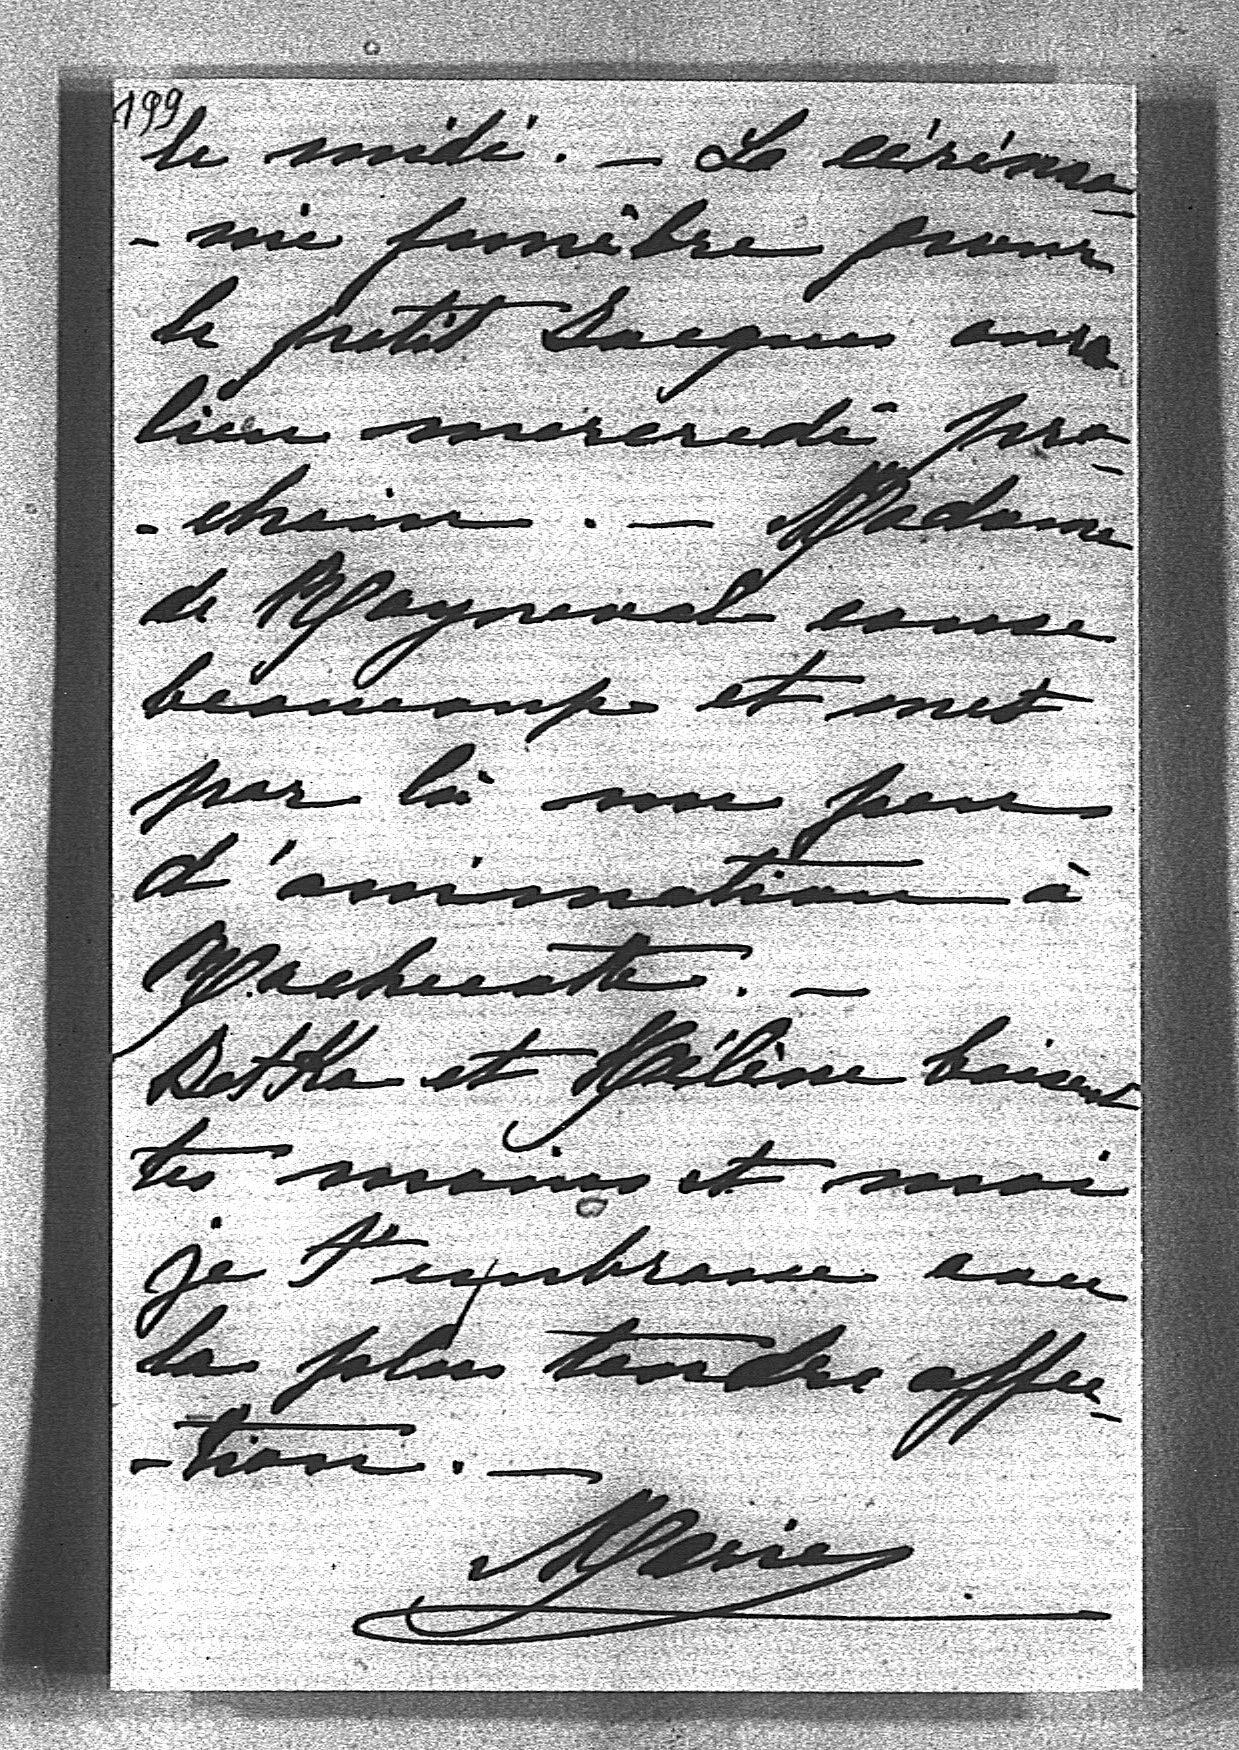 199
le midi. — La cérémo-
- nie funèbre pour
le petit Jacques aura
lieu mercredi pro-
- chain. — Madame
de Mayneval cause
beaucoup et met
par là un peu
d'animation à
et Hélène baisent
tes mains et moi
je t'embrasse avec
la plus tendre affec-
- tion. —
Marie